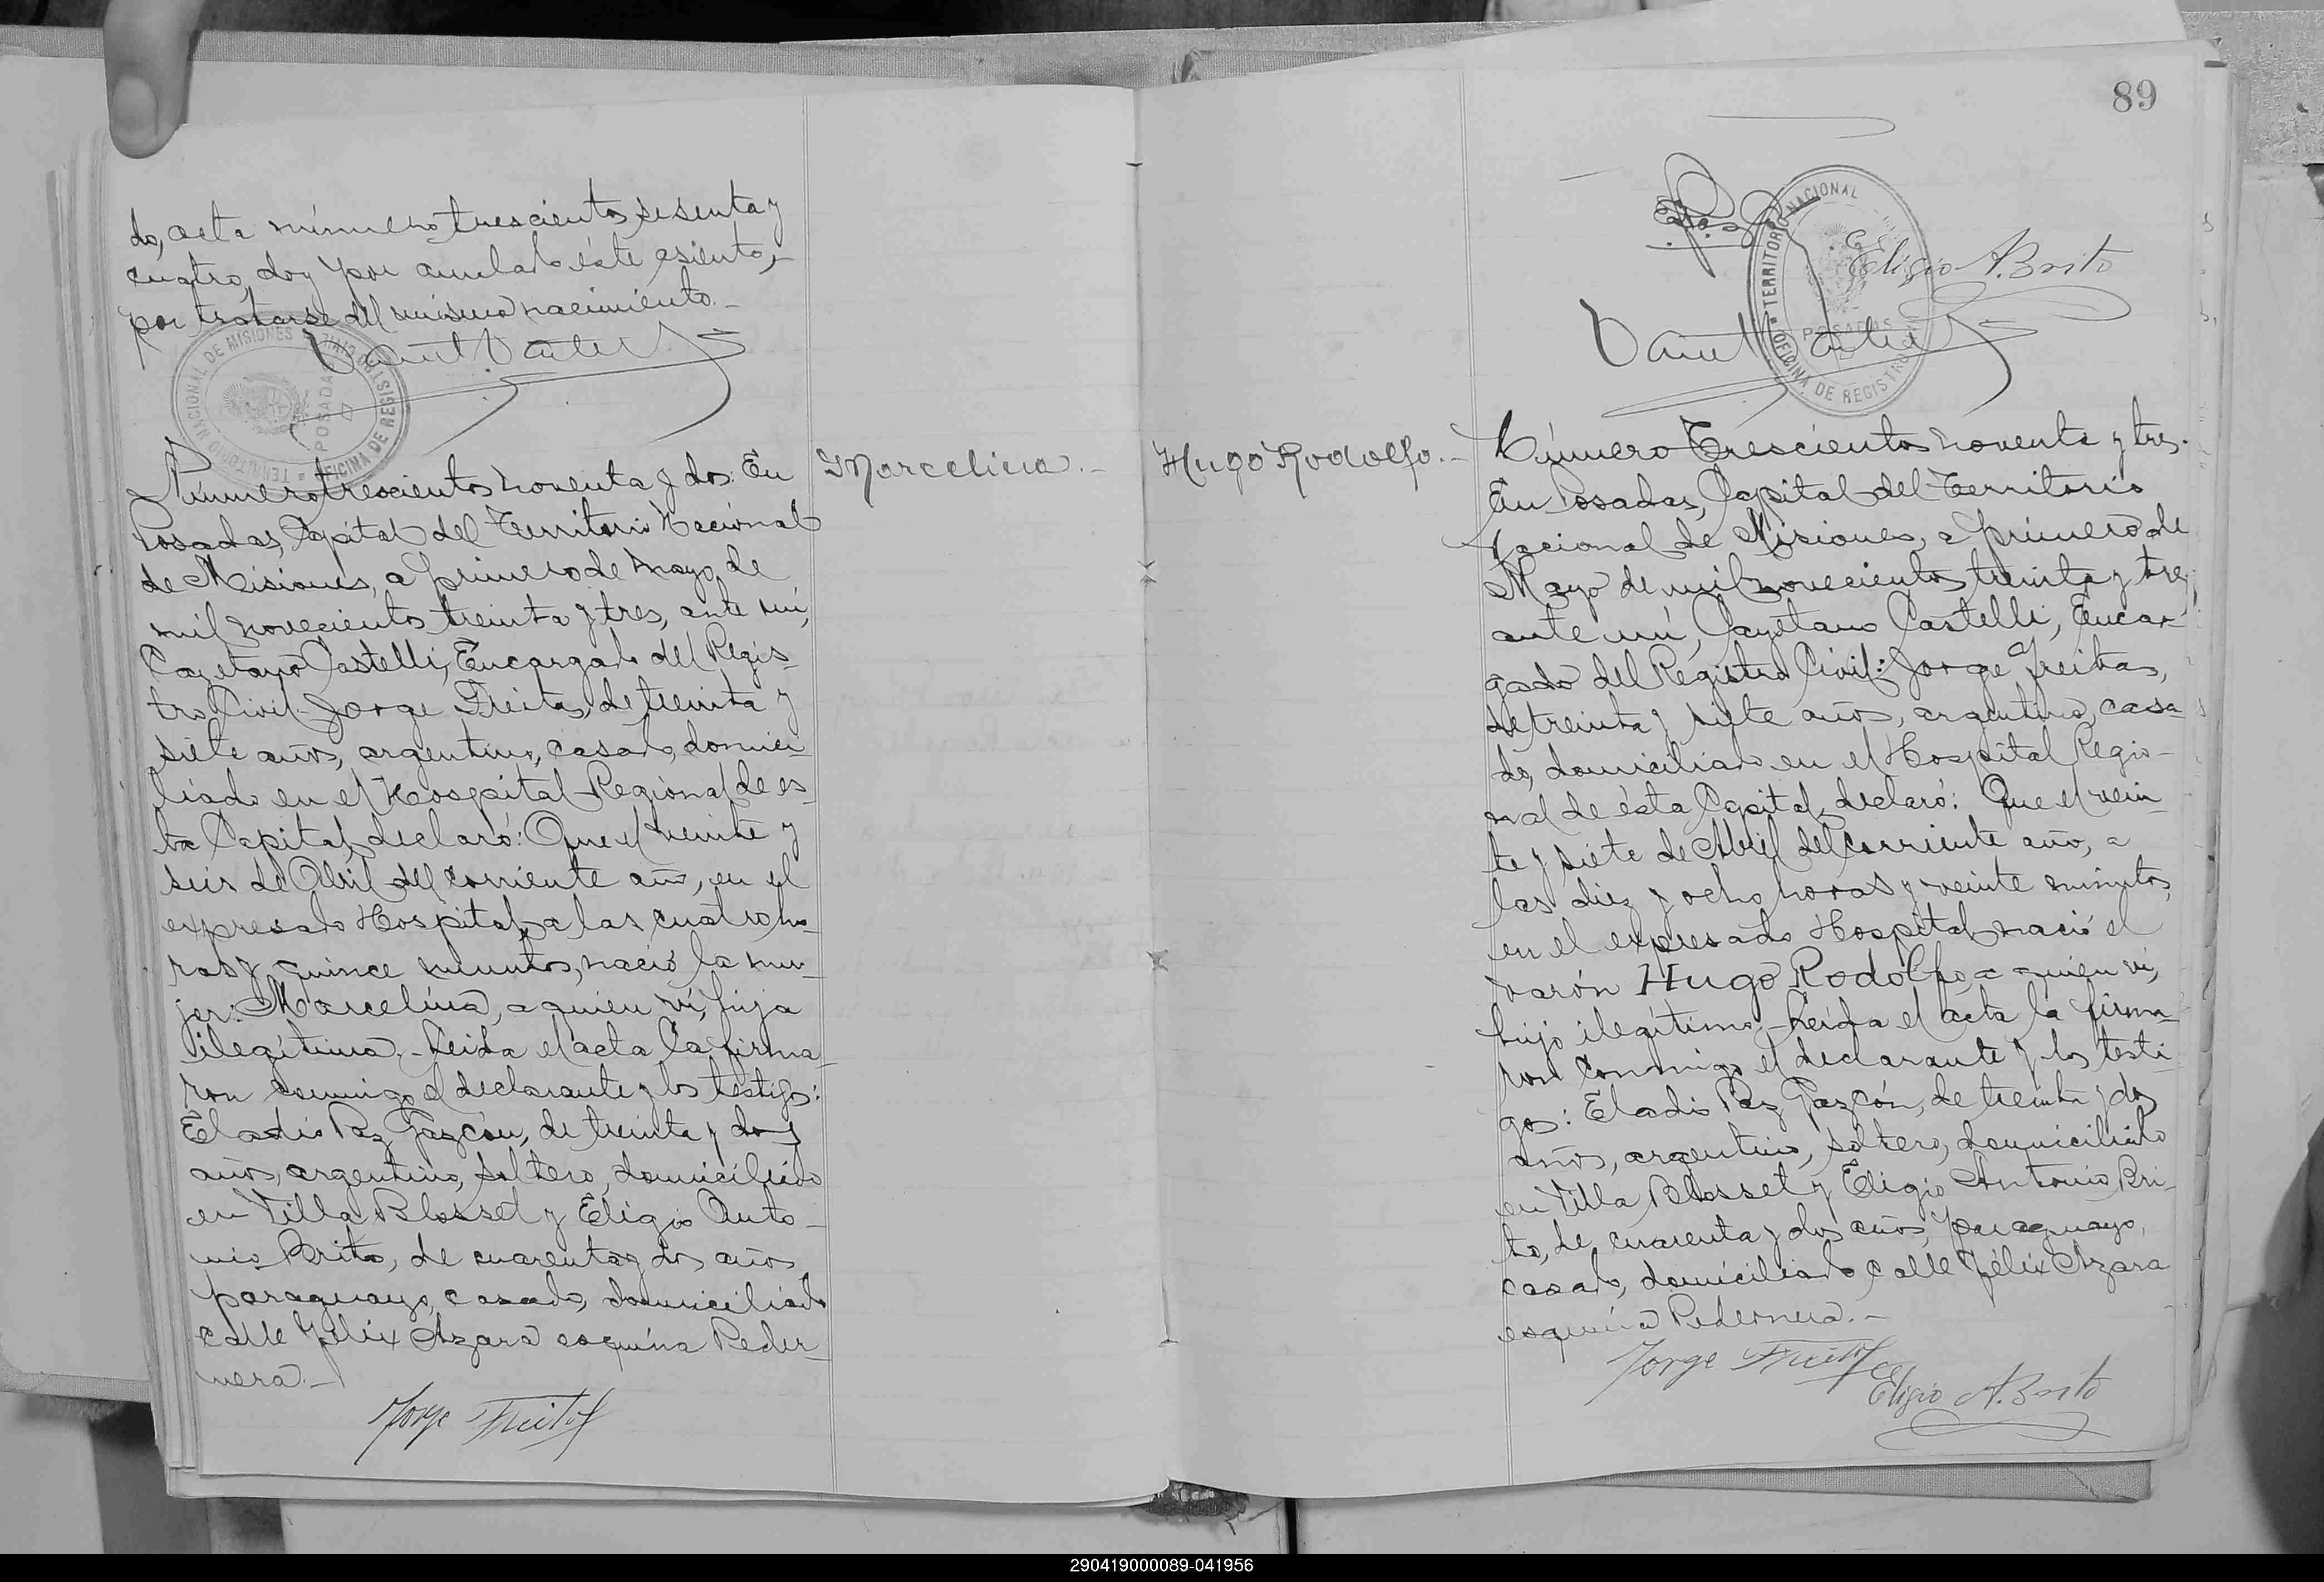 do, acta número trescientos sesenta y
cuatro, doy por anulado éste asiento,
por tratarse del mismo nacimiento.-
TERRITORIO NACIONAL DE MISIONES
OFICINA DE REGISTRO
POSADAS
Número trescientos noventa y dos: En
Posadas, Capital del Territorio Nacional
de Misiones, a primero de mayo de
mil novecientos treinta y tres, ante mí,
Cayetano Castelli, Encargado del Regis-
tro Civil: Jorge Freitas, de treinta y
siete años, argentino, casado, domici-
liado en el Hospital Regional de es-
ta Capital, declaró: Que el veinte y
seis de Abril del corriente año, en el
expresado Hospital a las cuatro ho-
ras y quince minutos, nació la mu-
jer: Marcelina, a quien ví, hija
ilegítima.- Leida el acta la firma-
ron conmigo el declarante y los testigos:
Eladio Paz Gazcón, de treinta y dos
años, argentino, soltero, domiciliado
en Villa Blosset y Eligio Anto-
nio Brito, de cuarenta y dos años,
paraguayo, casado, domiciliado
calle Félix Azara esquina Peder-
nera.-
Jorge Freitas
Marcelina.-
Hugo Rodolfo.-
89
TERRITORIO NACIONAL
POSADAS
OFICINA DE REGISTRO
Eligio A. Brito
Número Trescientos noventa y tres.
En Posadas, Capital del Territorio
Nacional de Misiones, a primero de
Mayo de mil novecientos treinta y tres,
ante mí, Cayetano Castelli, Encar-
gado del Registro Civil: Jorge Freitas,
de treinta y siete años, argentino, casa-
do, domiciliado en el Hospital Regio-
nal de ésta Capital, declaró: Que el vein-
te y siete de Abril del corriente año, a
las diez y ocho horas y veinte minutos,
en el expresado Hospital nació el
varón Hugo Rodolfo, a quien ví,
hijo ilegítimo.- Leída el acta la firma-
ron conmigo el declarante y los testi-
gos: Eladio Paz Gazcón, de treinta y dos
años, argentino, soltero, domiciliado
en Villa Blosset y Eligio Antonio Bri-
to, de cuarenta y dos años, paraguayo,
casado, domiciliado calle Félix Azara
esquina Pedernera.-
Jorge Freitas
Eligio A. Brito
290419000089-041956